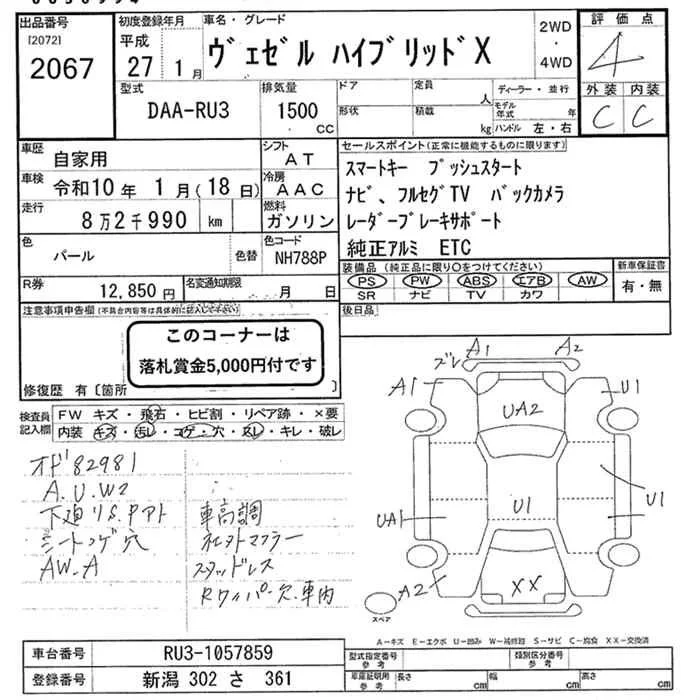 出品番号
[2072]
2067
初度登録年月
平成
27 1月
車名・グレード
ヴェゼル ハイブリッドX
2WD
・
4WD
評価点
4
外装 内装
C C
型式
DAA-RU3
排気量
1500
CC
ドア
形状
定員
人
積載
kg
ディーラー・並行
モデル年式 年
ハンドル 左・右
車歴
自家用
シフト
AT
車検
令和10年 1月(18日)
冷房
AAC
走行
8万2千990 km
燃料
ガソリン
色
パール
色替
色コード
NH788P
R券
12,850円
名変通知期限
月 日
セールスポイント(正常に機能するものに限ります)
スマートキー プッシュスタート
ナビ、フルセグTV バックカメラ
レーダーブレーキサポート
純正アルミ ETC
装備品(純正品に限り○をつけてください)
PS PW ABS エアB AW
SR ナビ TV カワ
新車保証書
有・無
後日品
注意事項申告欄(不具合内容等は具体的に記入して下さい)
このコーナーは
落札賞金5,000円付です
修復歴 有〔箇所
検査員記入欄
FW キズ・飛石・ヒビ割・リペア跡・×要
内装 キズ・汚レ・コゲ・穴・スレ・キレ・破レ
オド82981
A.U.W2
下廻りS.Pアト
シートコゲ穴
AW-A
車高調
社外マフラー
スタッドレス
Rワイパー欠.車内
ズレ A1 A2
A1 U1
UA2
UA1 U1 U1
A2 XX
スペア
A-キズ E-エクボ U-凹み W-補修跡 S-サビ C-腐食 XX-交換済
車台番号 RU3-1057859
登録番号 新潟 302 さ 361
型式指定番号
参考
類別区分番号
参考
車庫証明用
参考
長さ cm
幅 cm
高さ cm